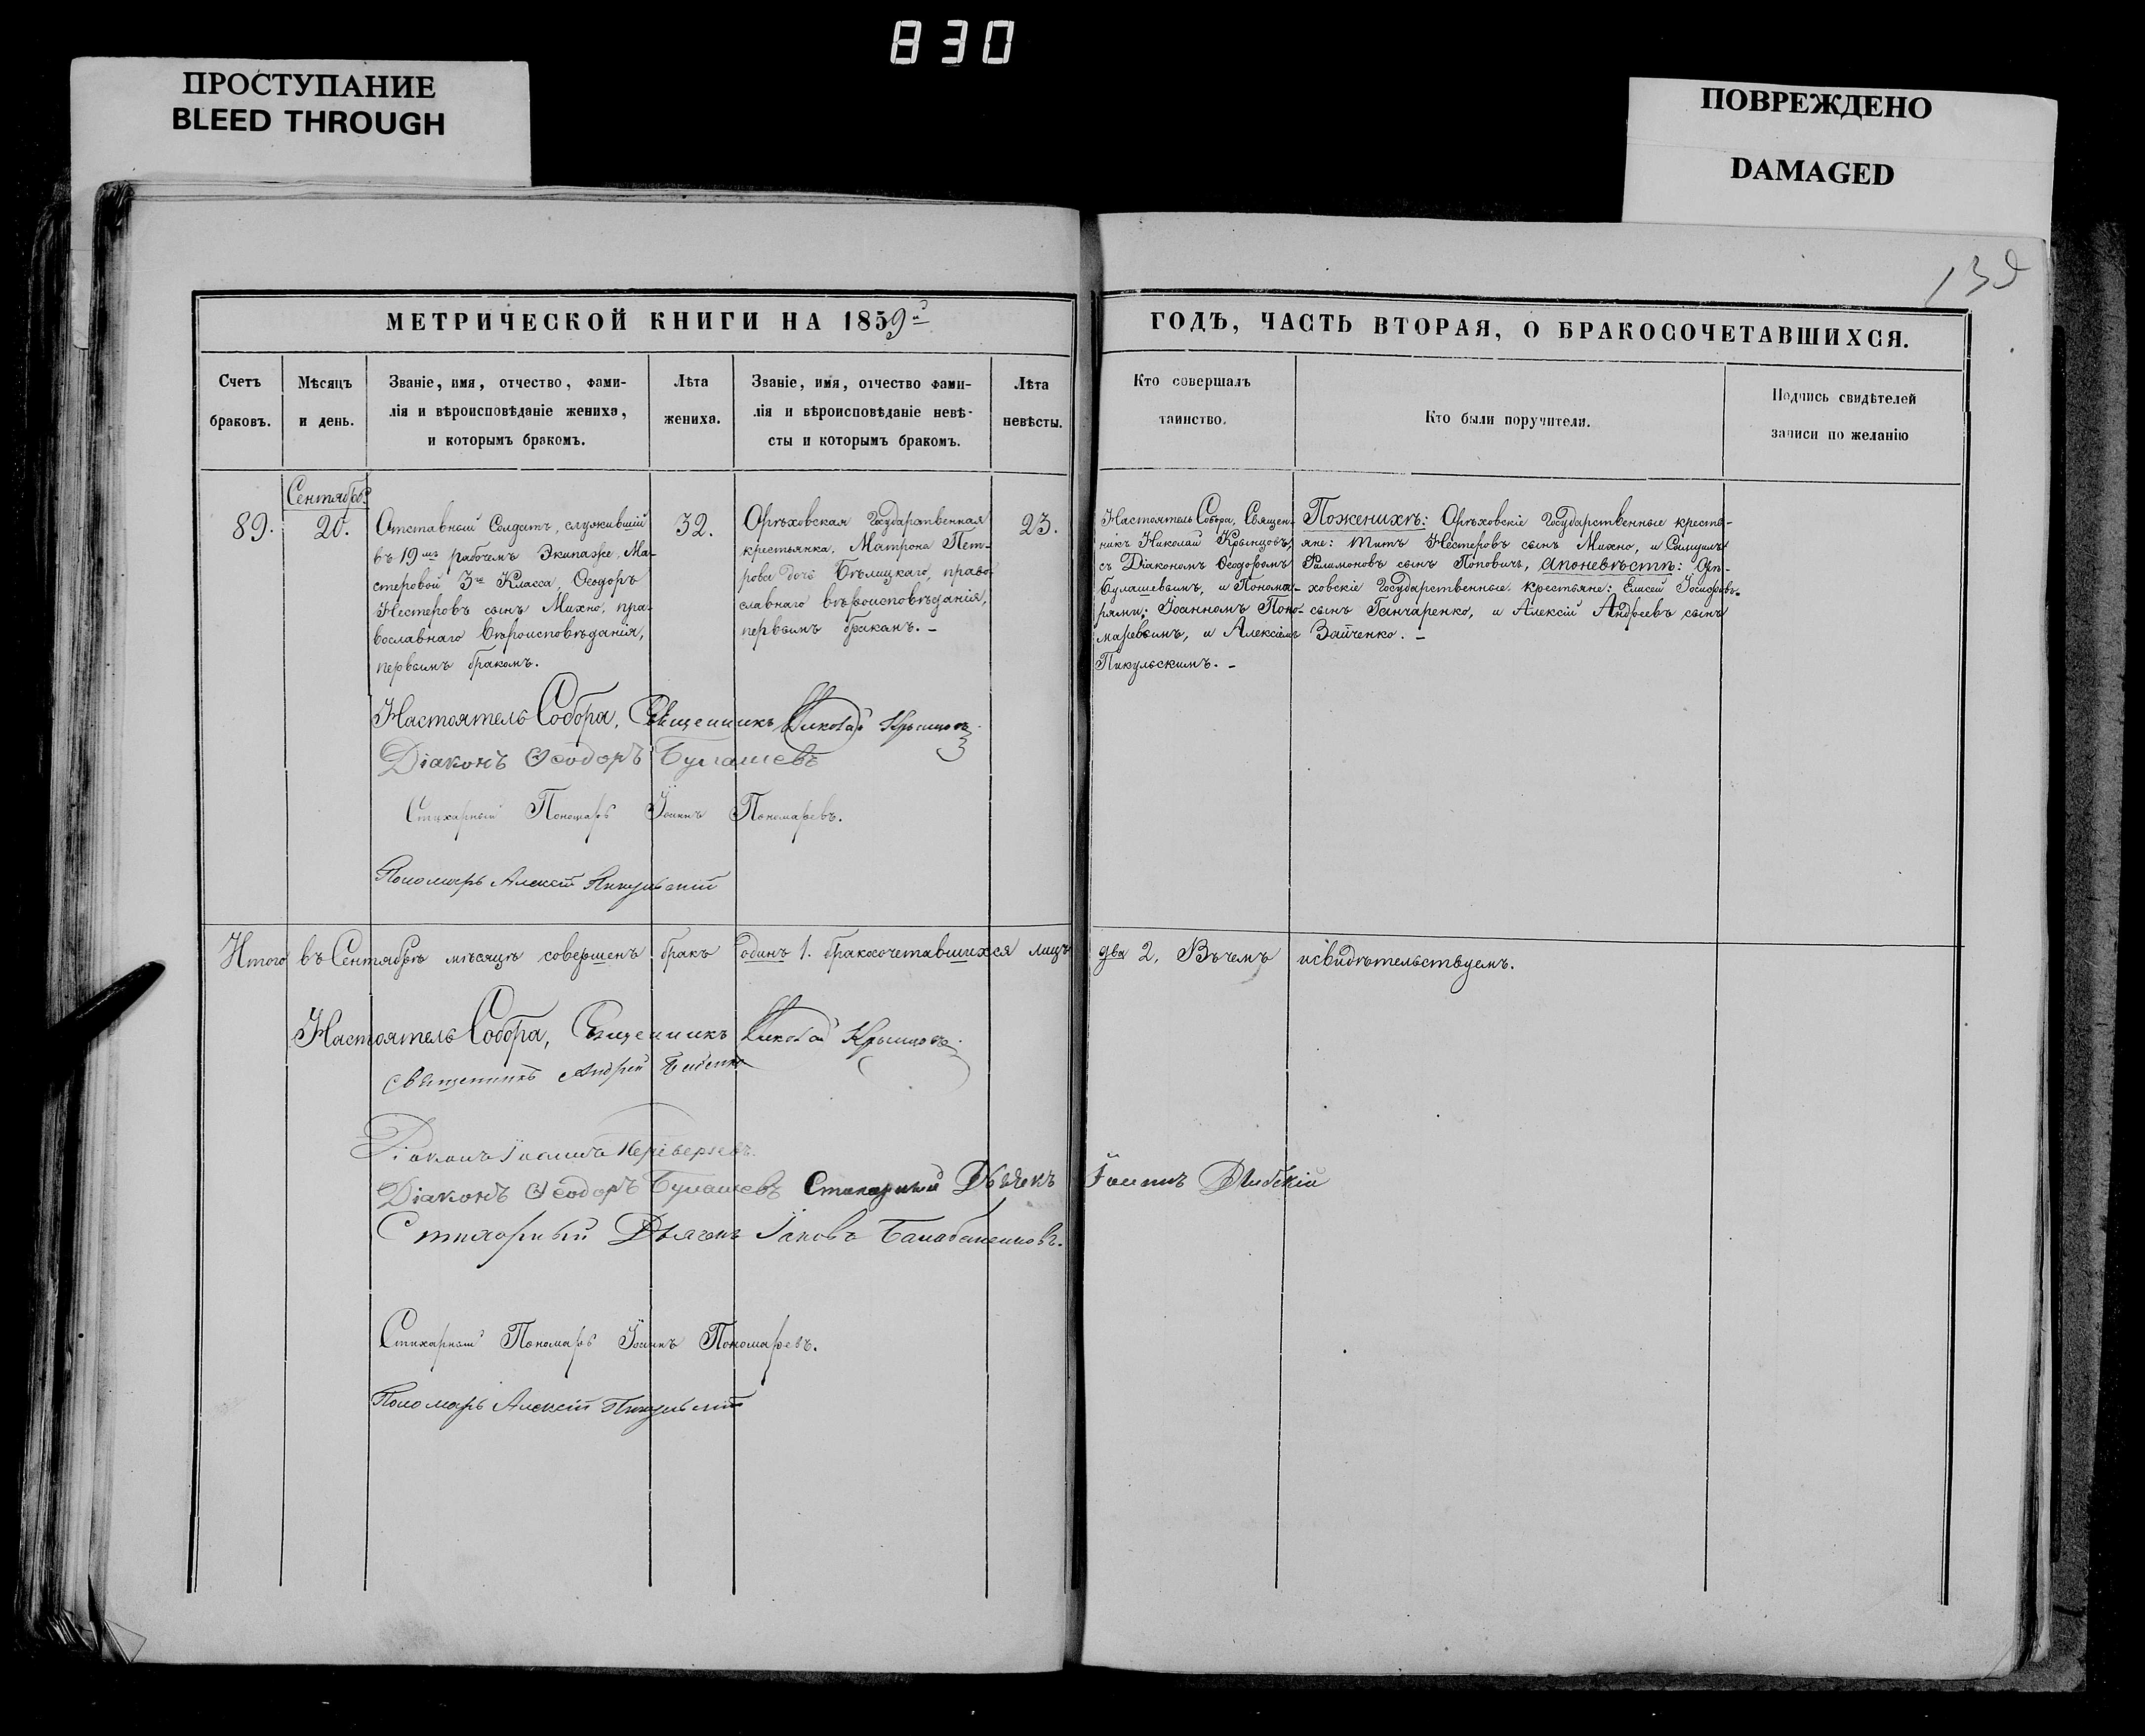 830
ПРОСТУПАНИЕ
BLEED THROUGH
ПОВРЕЖДЕНО
DAMAGED
139
МЕТРИЧЕСКОЙ КНИГИ НА 1859й
ГОДЪ, ЧАСТЬ ВТОРАЯ, О БРАКОСОЧЕТАВШИХСЯ.
Счетъ
браковъ.
Мѣсяцъ
и день.
Званіе, имя, отчество, фами-
лія и вѣроисповѣданіе жениха,
и которымъ бракомъ.
Лѣта
жениха.
Званіе, имя, отчество фами-
лія и вѣроисповѣданіе невѣ-
сты и которымъ бракомъ.
Лѣта
невѣсты.
Кто совершалъ
таинство.
Кто были поручители.
Подпись свидѣтелей
записи по желанію
Сентябрь
89.
20.
Отставный Солдатъ, служившій
въ 19мъ рабочемъ Экипаже, Ма-
стеровой 3го Класса, Ѳеодоръ
Нестеровъ сынъ Михно, пра-
вославнаго вѣроисповѣданія,
первымъ бракомъ.
32.
Орѣховская Государственная
крестьянка, Матрона Пет-
рова дочь Бѣлицкаго, право-
славнаго вѣроисповѣданія,
первымъ бракомъ. –
23.
Настоятель Собора, Священ-
никъ Николай Крынцовъ,
съ Діакономъ Ѳеодоромъ
Булашевымъ, и Понома-
рями: Іоанномъ Поно-
маревымъ, и Алексіемъ
Пикульскимъ. –
Поженихѣ: Орѣховскіе Государственные кресть-
яне: Титъ Нестеровъ сынъ Михно, и Самуилъ
Филимоновъ сынъ Поповичъ, апоневѣстѣ: Орѣ-
ховскіе Государственные крестьяне: Елисей Іосифовъ
сынъ Ганчаренко, и Алексій Андреевъ сынъ
Зайченко. –
Настоятель Собора, Священникъ Николай Крынцовъ
Діаконъ Ѳеодоръ Булашевъ
Стихарный Пономарь Іоаннъ Пономаревъ.
Пономарь Алексій Пикульскій
Итого въ Сентябрѣ мѣсяцѣ совершенъ бракъ одинъ 1. бракосочетавшихся лицъ два 2, Въчемъ исвидѣтельствуемъ.
Настоятель Собора, Священникъ Николай Крынцовъ
Священникъ Андрей
Діаконъ Іоаннъ Переверзевъ.
Діаконъ Ѳеодоръ Булашевъ Стихарный Дьячекъ Іоаннъ
Стихарный Дьячекъ Іаковъ Балабаненковъ.
Стихарный Пономарь Іоаннъ Пономаревъ.
Пономарь Алексій Пикульскій